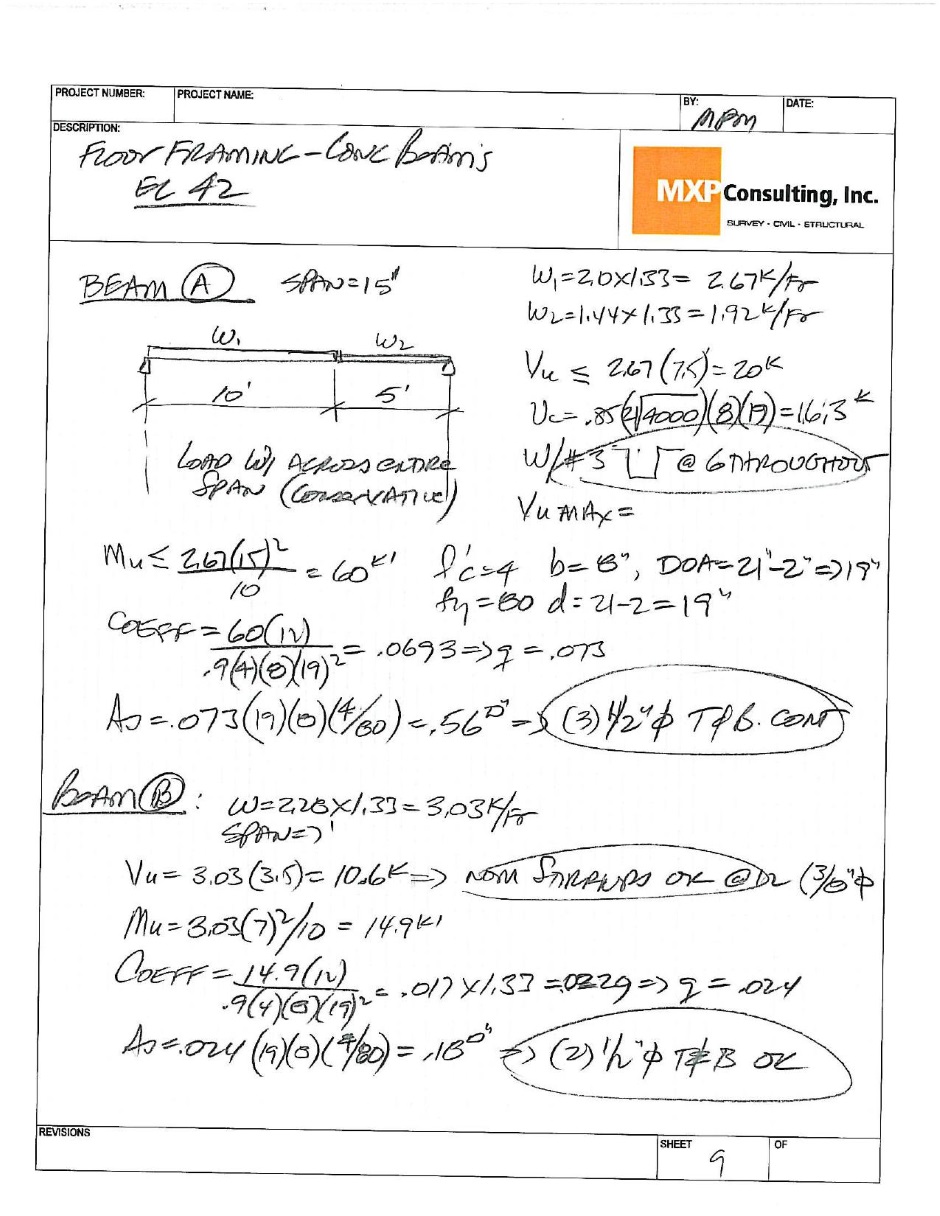 PROJECT NUMBER: PROJECT NAME: BY: MPM DATE:
DESCRIPTION:
FLOOR FRAMING - CONC BEAMS
EL 42
MXP Consulting, Inc.
SURVEY - CIVIL - STRUCTURAL
BEAM A SPAN = 15'
W1 = 2.0 x 1.33 = 2.67 K/FT
W2 = 1.44 x 1.33 = 1.92 K/FT
W1 W2
10' 5'
LOAD W1 ACROSS ENTIRE
SPAN (CONSERVATIVE)
Vu ≤ 2.67 (7.5) = 20K
Vc = .85(2√4000)(8)(19) = 16.3K
W/#3 @ 6 THROUGHOUT
Vu MAX =
Mu ≤ 2.67(15)²/10 = 60K' f'c = 4 b = 8", DOA = 21"-2" => 19"
fy = 80 d = 21-2 = 19"
COEFF = 60(12)/.9(4)(8)(19)² = .0693 => q = .073
As = .073(19)(8)(4/80) = .56□" => (3) 1/2"φ T&B. CONT
BEAM B: W = 2.28 x 1.33 = 3.03 K/FT
SPAN = 7'
Vu = 3.03 (3.5) = 10.6K => NOM STIRRUPS OK @ D/2 (3/8"φ
Mu = 3.03(7)²/10 = 14.9K'
COEFF = 14.9(12)/.9(4)(8)(19)² = .017 x 1.33 = .0229 => q = .024
As = .024 (19)(8)(4/80) = .18□" => (2) 1/2"φ T&B OK
REVISIONS SHEET 9 OF